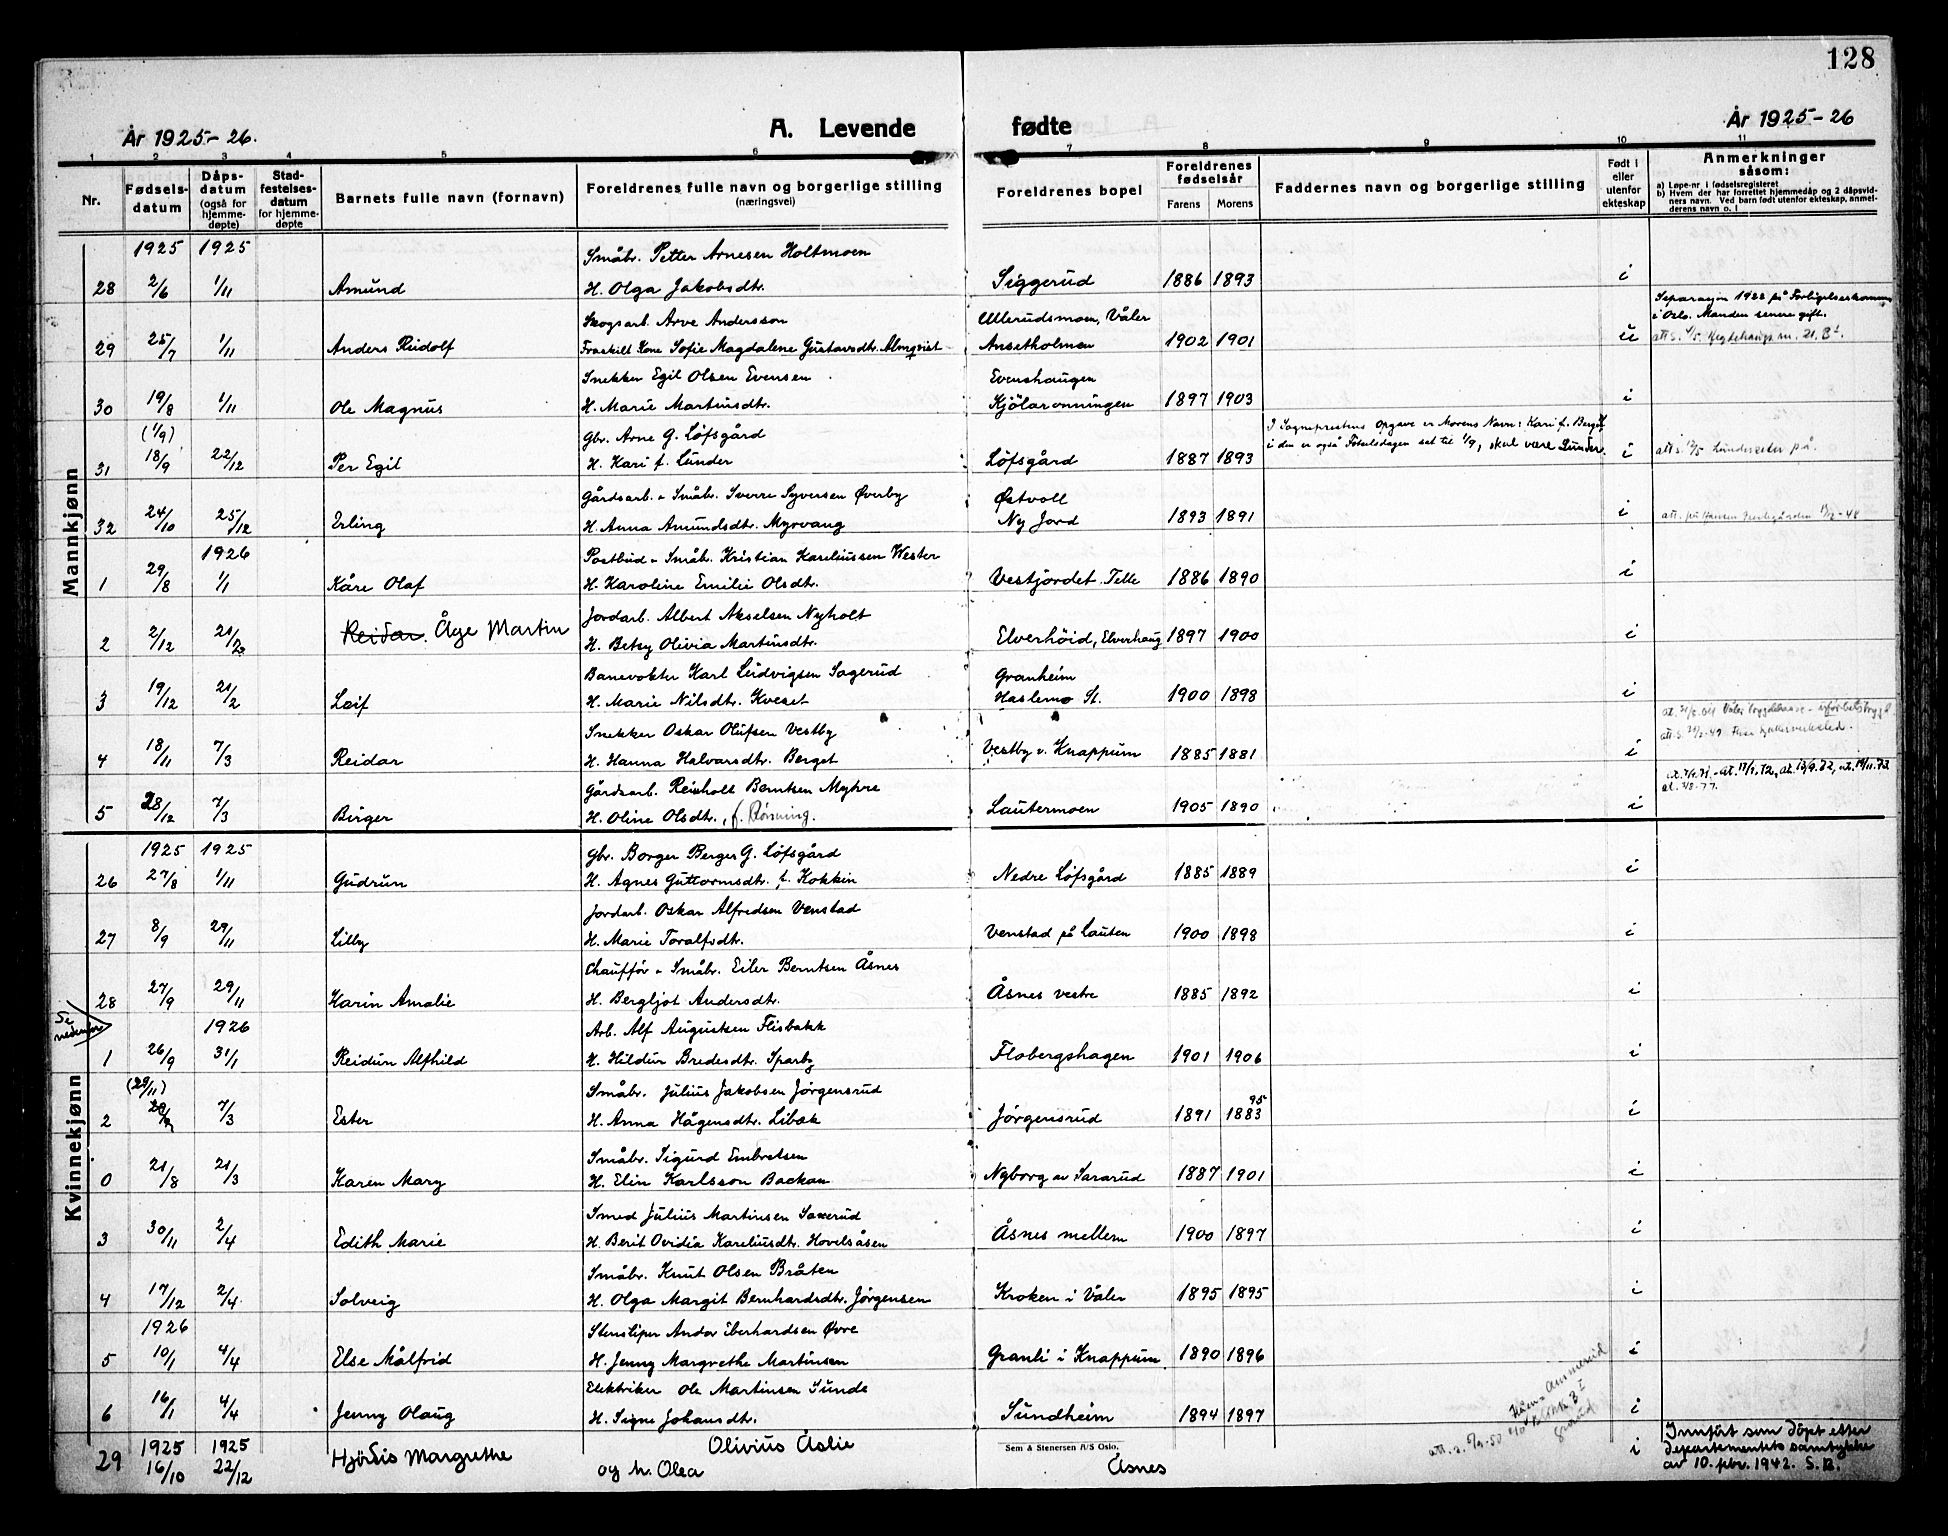 128
År 1925-26.
A. Levende fødte
År 1925-26
1 2 3 4 5 6 7 8 9 10 11
Nr.
Fødsels-datum
Dåps-datum (også for hjemme-døpte)
Stad-festelses-datum for hjemme-døpte
Barnets fulle navn (fornavn)
Foreldrenes fulle navn og borgerlige stilling (næringsvei)
Foreldrenes bopel
Foreldrenes fødselsår
Farens Morens
Faddernes navn og borgerlige stilling
Født i eller utenfor ekteskap
Anmerkninger såsom:
a) Løpe-nr i fødselsregisteret
b) Hvem der har forrettet hjemmedåp og 2 dåpsvidners navn. Ved barn født utenfor ekteskap, anmelderens navn o. l
Mannkjønn
1925 1925 Småbr. Petter Arnesen Holtmoen
28 2/6 1/11 Amund H. Olga Jakobsdtr. Siggerud 1886 1893 i
Skogsarb. Arve Andersson Ullerudsmoen, Våler Separasjon 1922 på Forligelseskomm. i Oslo. Manden senere gift.
29 25/7 1/11 Anders Rudolf Fraskilt Kone Sofie Magdalene Gustavsdtr. Almqvist Ansetholmen 1902 1901 u
Snekker Egil Olsen Evensen Evenshaugen
30 19/8 1/11 Ole Magnus H. Marie Martinsdtr. Kjölaronningen 1897 1903 i
(1/9) Gbr. Arne G. Löfsgård I Sogneprestens Opgave er Morens Navn: Kari f. Berget, i den er også Fødselsdagen sat til 1/9, skul være Lunder.
31 18/9 22/12 Per Egil H. Kari f. Lunder Löfsgård 1887 1893 i att s. 12/5 Lunderseter på.
Gårdsarb. & Småbr. Sverre Syversen Øverby Østvoll
32 24/10 25/12 Erling H. Anna Amundsdtr. Myrvang Ny Jord 1893 1891 i
1926 Postbud & Småbr. Kristian Kareliussen Wester
1 29/8 1/1 Kåre Olaf H. Karoline Emilie Olsdtr. Vestjordet. Telle 1886 1890 i
Jordarb. Albert Akselsen Nyholt
2 2/12 21/2 Reidar. Åge Martin H. Betsy Olivia Martinsdtr. Elverhöid, Elverhaug 1897 1900 i
Banevokter Karl Ludvigsen Sagerud Granheim
3 19/12 21/2 Leif H. Marie Nilsdtr. Kveset Haslemo St. 1900 1898 i
Snekker Oskar Olufsen Vestby
4 18/11 7/3 Reidar H. Hanna Halvarsdtr. Berget Vestby v. Knappum 1885 1881 i
Gårdsarb. Reinholt Berntsen Myhre
5 28/12 7/3 Birger H. Oline Olsdtr., f. Rönning. Lautermoen 1905 1890 i
Kvinnekjønn
1925 1925 Gbr. Borger Berger G. Löfsgård
26 27/8 1/11 Gudrun H. Agnes Guttormsdtr. f. Kokkin Nedre Löfsgård 1885 1889 i
Jordarb. Oskar Alfredsen Venstad
27 8/9 29/11 Lilly H. Marie Toralfsdtr. Venstad på Lauten 1900 1898 i
Chaufför & Småbr. Eiler Berntsen Åsnes
28 27/9 29/11 Karin Amalie H. Bergljot Andersdtr. Åsnes vestre 1885 1892 i
Se nedenfor
1926 Arb. Alf Augustsen Flisbakk
1 26/9 31/1 Reidun Alfhild H. Hildur Bredesdtr. Sparby Flobergshagen 1901 1906 i
(29/11) Småbr. Julius Jakobsen Jörgensrud 95
2 7/3 Ester H. Anna Hågensdtr. Libak Jörgensrud 1891 1883 i
Småbr. Sigurd Embretsen
0 21/8 21/3 Karen Mary H. Elin Karlsson Backan Nyborg av Sararud 1887 1901 i
Smed Julius Martinsen Saxerud
3 30/11 2/4 Edith Marie H. Berit Ovidia Kareliusdtr. Hovelsåsen Åsnes mellem 1900 1897 i
Småbr. Knut Olsen Bråten
4 17/12 2/4 Solveig H. Olga Margit Bernhardsdtr. Jörgensen Kroken i Våler 1895 1895 i
1926 Stensliper Andor Eberhardsen Øvre
5 10/1 4/4 Else Målfrid H. Jenny Margrethe Martinsen Granli i Knappum. 1890 1896 i
Elektriker Ole Martinsen Sunde
6 16/1 4/4 Jenny Olaug H. Signe Johansdtr. Sundheim 1894 1897 i
1925 1925 Olivius Åslie Sem & Stenersen A/S Oslo. Innført som döpt etter
29 16/10 22/12 Hjördis Margrethe og h. Olea Åsnes i departementets samtykke
av 10. febr. 1942. S.B.